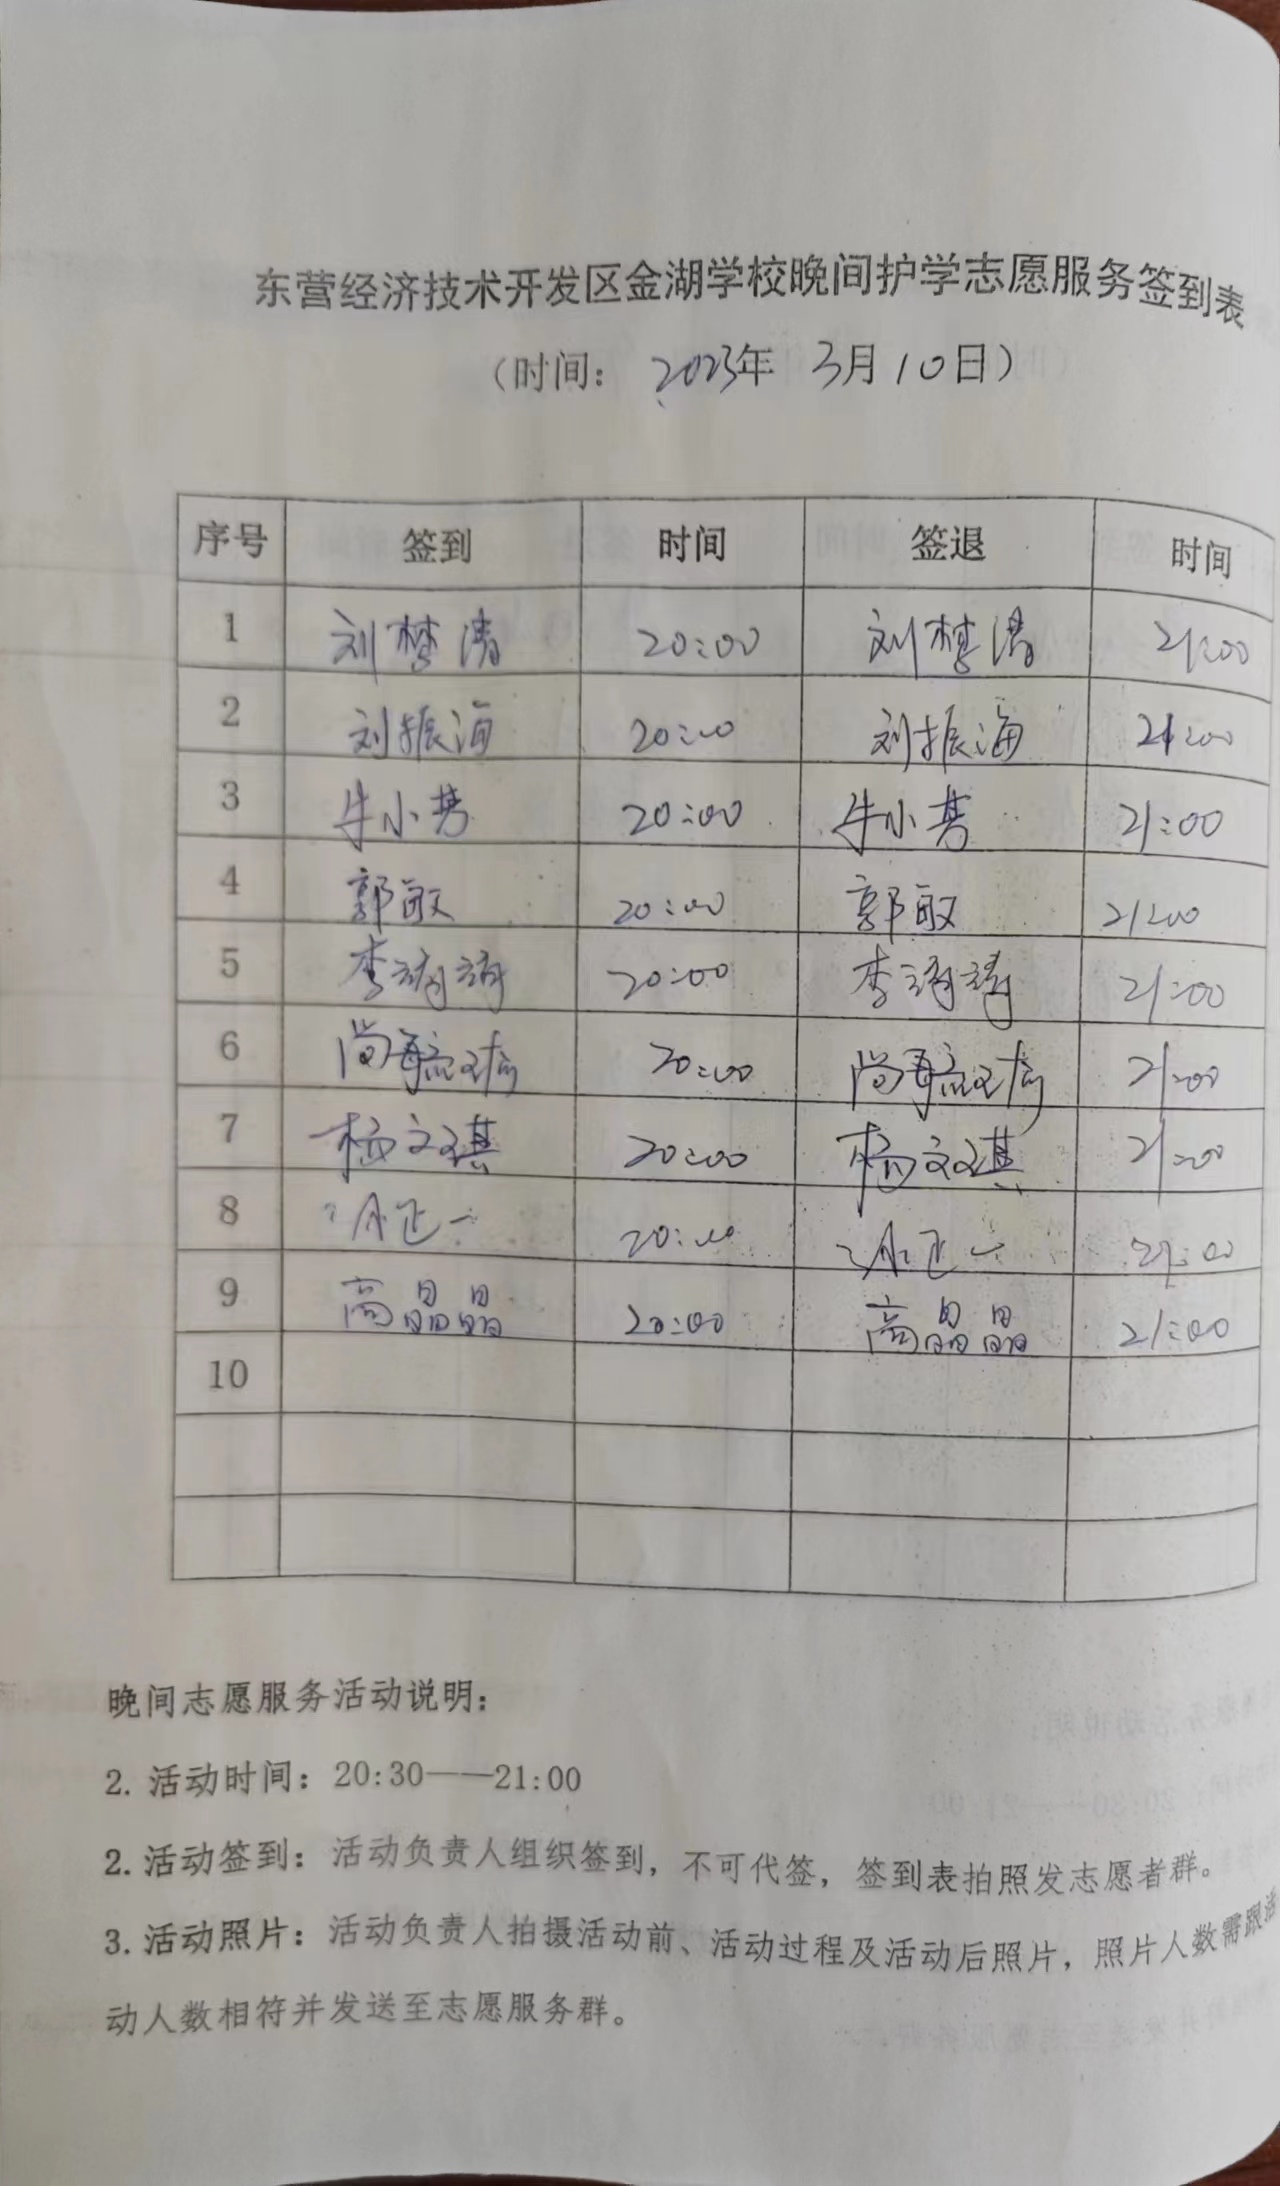 东营经济技术开发区金湖学校晚间护学志愿服务签到表
（时间： 2023年 3月10日）
序号 签到 时间 签退 时间
1 刘梦清 20:00 刘梦清 21:00
2 刘振海 20:00 刘振海 21:00
3 牛小 20:00 牛小 21:00
4 郭敏 20:00 郭敏 21:00
5 李 20:00 李 21:00
6 尚 20:00 尚 21:00
7 杨文琪 20:00 杨文琪 21:00
8 正一 20:00 正一 21:00
9 高晶晶 20:00 高晶晶 21:00
10
晚间志愿服务活动说明：
2. 活动时间：20:30——21:00
2. 活动签到：活动负责人组织签到，不可代签，签到表拍照发志愿者群。
3. 活动照片：活动负责人拍摄活动前、活动过程及活动后照片，照片人数需跟活
动人数相符并发送至志愿服务群。